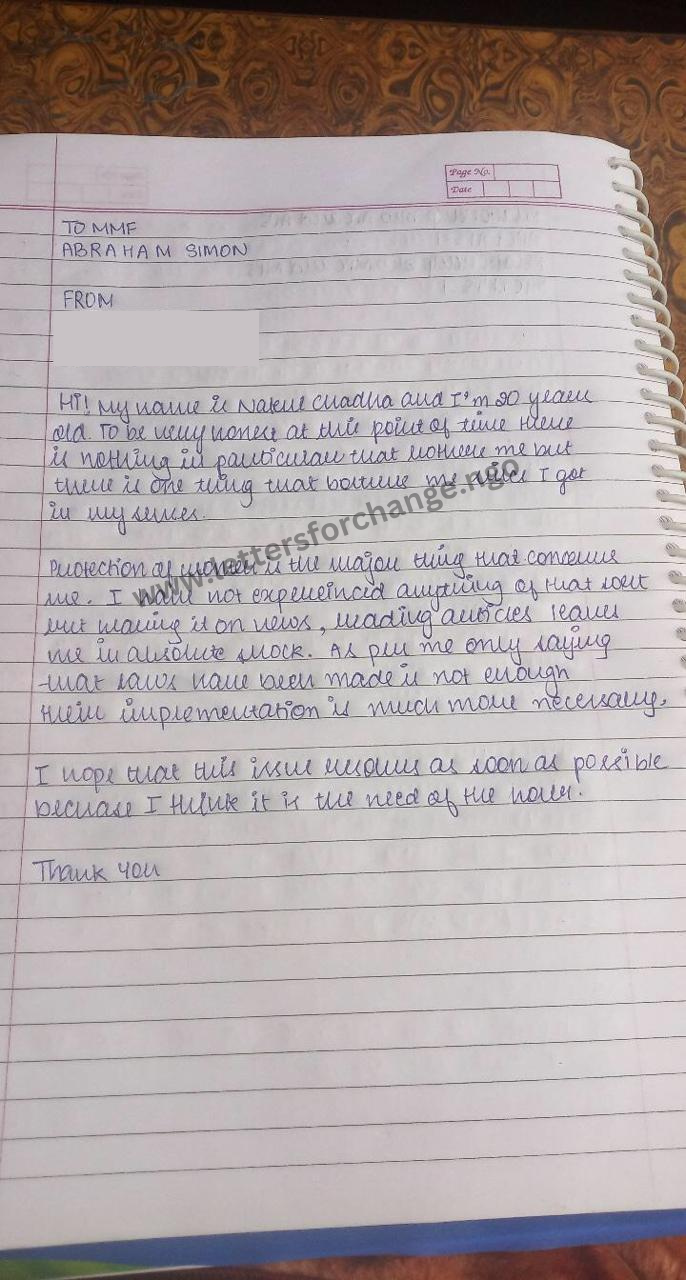 Page No.
Date
TO MMF
ABRAHAM SIMON
FROM
Hi! My name is Chadha and I'm 20 years
old. To be very honest at this point of time there
is nothing in particular that bothers me but
there is one thing that bothers me since I got
in my senses.
www.lettersforchange.ngo
Protection of women is the major thing that concerns
me. I have not experienced anything of that sort
but on news, reading articles leaves
me in absolute shock. As per me only saying
that laws have been made is not enough
their implementation is much more necessary.
I hope that this issue resolves as soon as possible
because I think it is the need of the hour.
Thank you